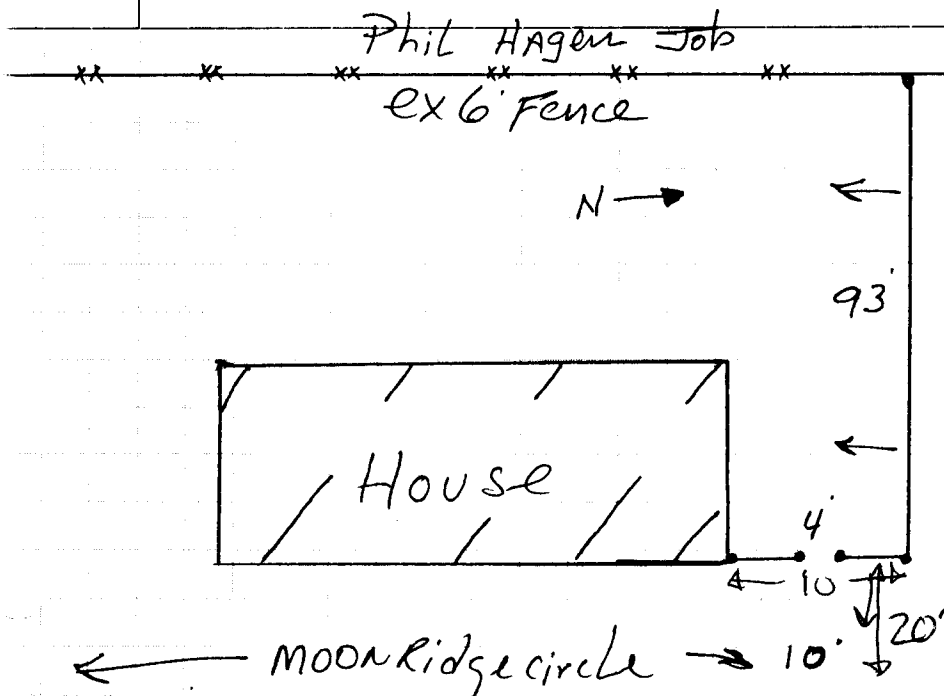 Phil Hagen Job
ex 6' Fence
N
93'
House
4'
10
20'
MOONRidge circle
10'